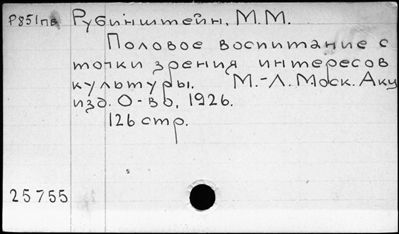 P851пв Рубинштейн, М.М.
Половое воспитание с
точки зрения интересов
культуры. М.-Л. Моск. Акц
изд. О-во, 1926.
126 стр.
25755